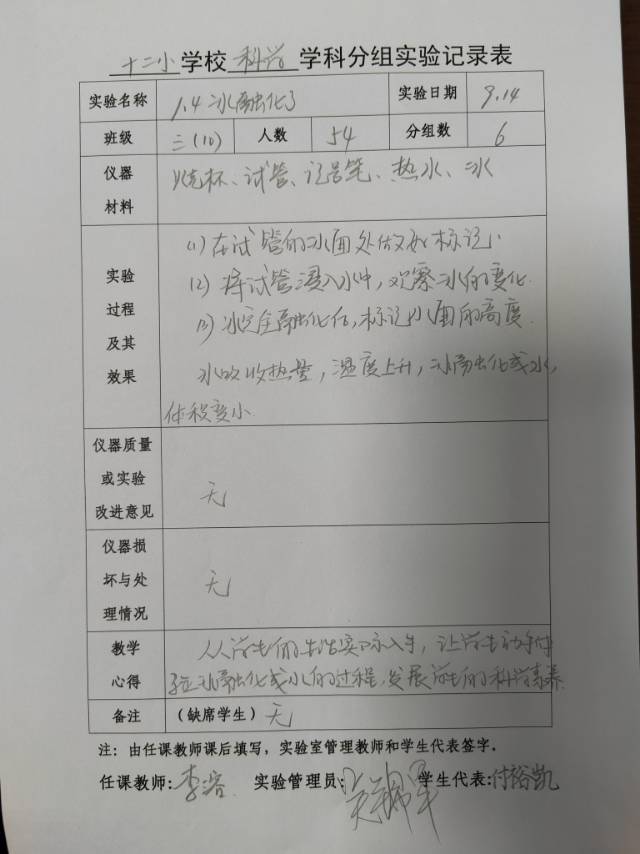 十二小学校 科学 学科分组实验记录表
实验名称 1.4 冰融化了 实验日期 9.14
班级 三(10) 人数 54 分组数 6
仪器材料 烧杯、试管、记号笔、热水、冰
实验过程及其效果
(1) 在试管的冰面处做好标记.
(2) 将试管浸入水中,观察冰的变化.
(3) 冰完全融化后,标记水面的高度.
冰吸收热量,温度上升,冰融化成水,
体积变小.
仪器质量或实验改进意见 无
仪器损坏与处理情况 无
教学心得
从学生的生活实际入手,让学生动手体
验冰融化成水的过程,发展学生的科学素养.
备注 (缺席学生) 无
注:由任课教师课后填写,实验室管理教师和学生代表签字。
任课教师: 李 实验管理员: 学生代表:付裕凯